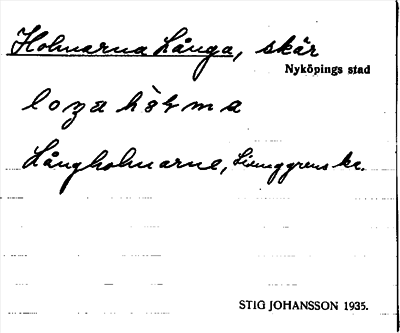 Holmarna Långa, skär
Nyköpings stad
Långholmarne, Liunggrens ka.
STIG JOHANSSON 1935.